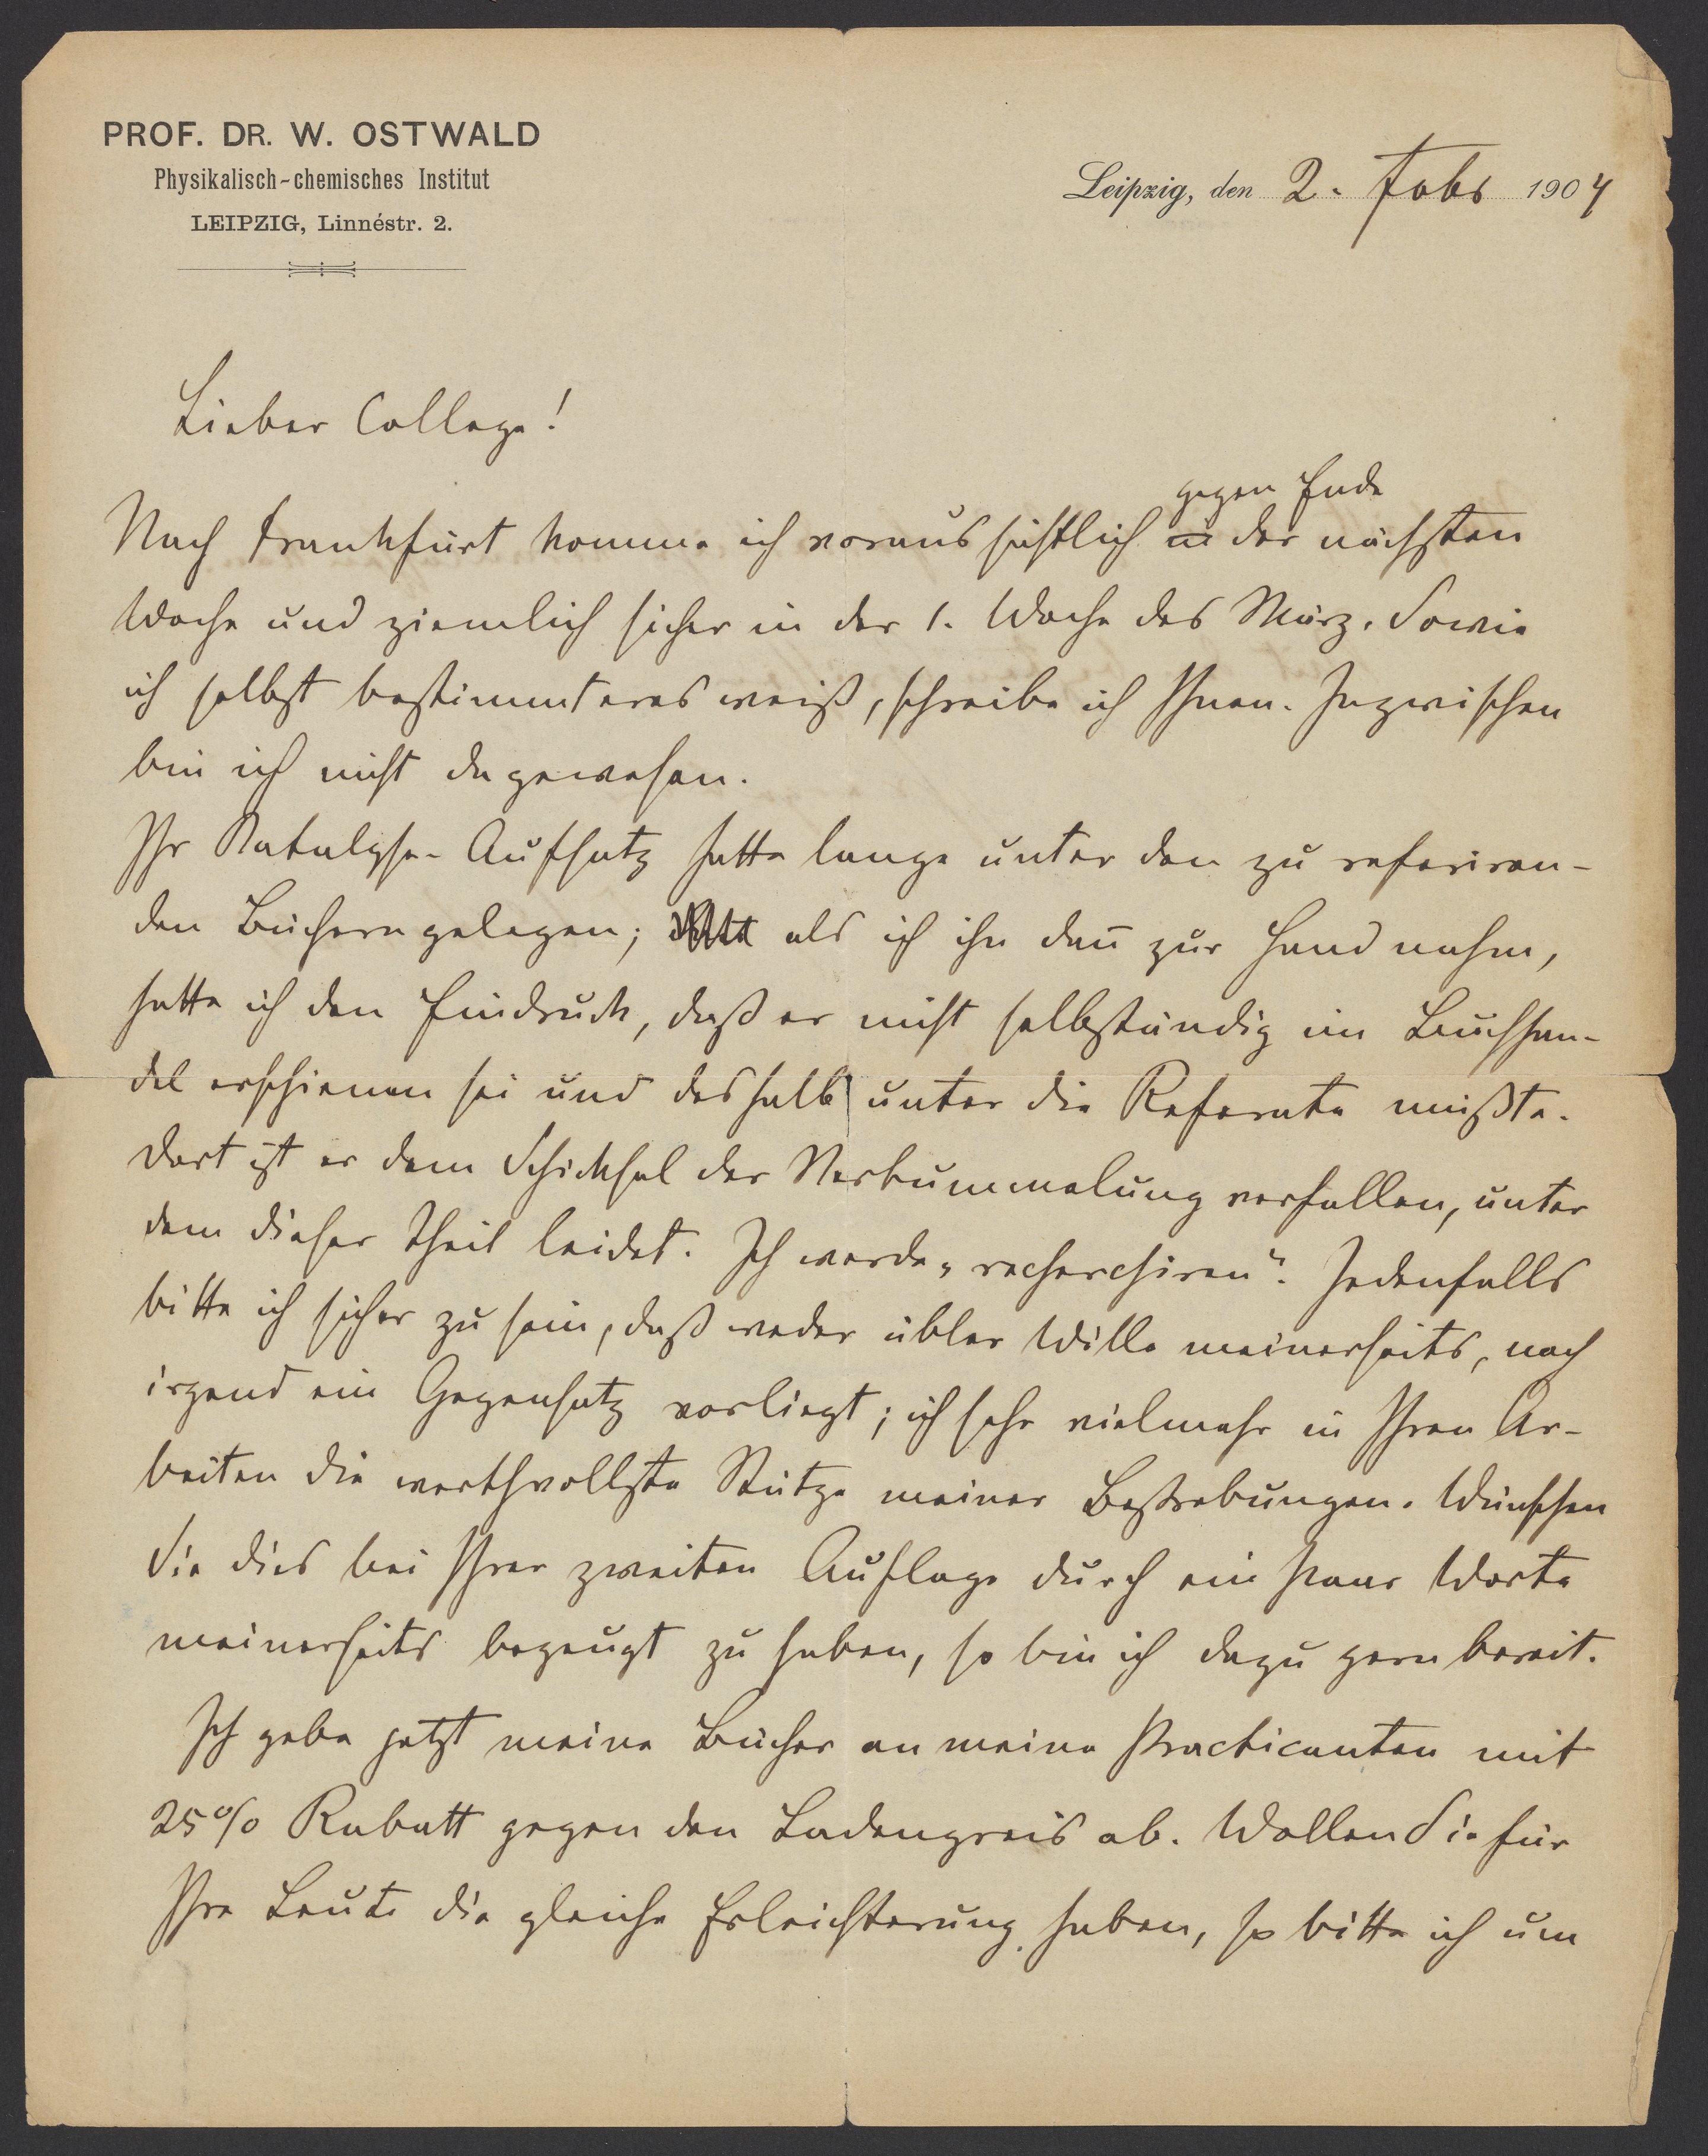 PROF. DR. W. OSTWALD
Physikalisch-chemisches Institut
LEIPZIG, Linnéstr. 2.
Leipzig, den 2. Febr 1904
Lieber College!
gegen Ende
Nach Frankfurt komme ich voraussichtlich in der nächsten
Woche und ziemlich sicher in der 1. Woche des März. Sowie
ich selbst bestimmteres weiß, schreibe ich Ihnen. Inzwischen
bin ich nicht dagewesen.
Ihr Katalyse-Aufsatz hatte lange unter den zu referiren-
den Büchern gelegen; als ich ihn dan̄ zur Hand nahm,
hatte ich den Eindruck, daß er nicht selbständig im Buchhan-
del erschienen sei und deshalb unter die Referate müßte.
Dort ist er dem Schicksal der Verbummelung verfallen, unter
dem dieser Theil leidet. Ich werde „recherchiren“. Jedenfalls
bitte ich sicher zu sein, daß weder übler Wille meinerseits, noch
irgend ein Gegensatz vorliegt; ich sehe vielmehr in Ihren Ar-
beiten die werthvollste Stütze meiner Bestrebungen. Wünschen
Sie dies bei Ihrer zweiten Auflage durch ein paar Worte
meinerseits bezeugt zu haben, so bin ich dazu gern bereit.
Ich gebe jetzt meine Bücher an meine Practicanten mit
25% Rabatt gegen den Ladenpreis ab. Wollen Sie für
Ihre Leute die gleiche Erleichterung haben, so bitte ich um